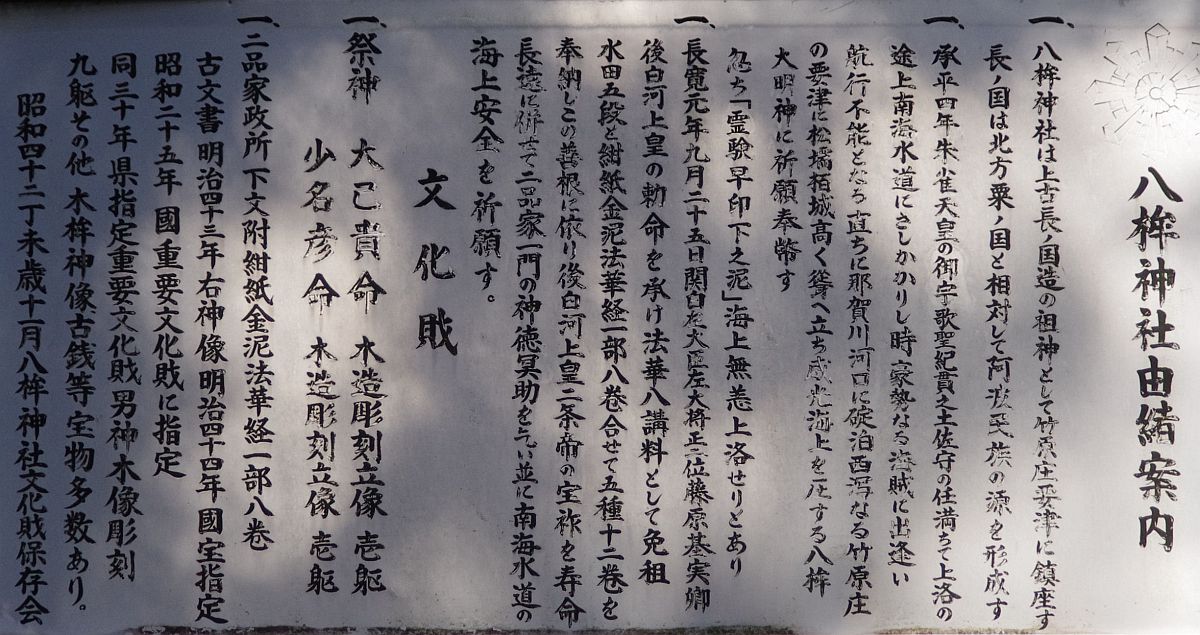 八桙神社由緒案内
一、八桙神社は上古長ノ国造の祖神として竹原庄要津に鎮座す
長ノ国は北方粟ノ国と相対して阿波民族の源を形成す
一、承平四年朱雀天皇の御宇歌聖紀貫之土佐守の任満ちて上洛の
途上南海水道にさしかかりし時豪勢なる海賊に出逢い
航行不能となる直ちに那賀川河口に碇泊西潟なる竹原庄
の要津に松墻栢城高く聳へ立ち威光海上を圧する八桙
大明神に祈願奉幣す
忽ち「霊験早印下之泥」海上無恙上洛せりとあり
一、長寛元年九月二十五日関白左大臣左大将正二位藤原基実卿
後白河上皇の勅命を承け法華八講料として免租
水田五段と紺紙金泥法華経一部八巻合せて五種十二巻を
奉納しこの善根に依り後白河上皇二条帝の宝祚を寿命
長遠に併せて二品家一門の神徳冥助を乞い並に南海水道の
海上安全を祈願す。
文化財
一、祭神 大己貴命 木造彫刻立像 壱躯
少名彦命 木造彫刻立像 壱躯
一、二品家政所下文附紺紙金泥法華経一部八巻
古文書明治四十三年右神像明治四十四年國宝指定
昭和二十五年 國重要文化財に指定
同三十年県指定重要文化財男神木像彫刻
九躯その他 木桙神像古銭等宝物多数あり。
昭和四十二丁未歳十一月八桙神社文化財保存会